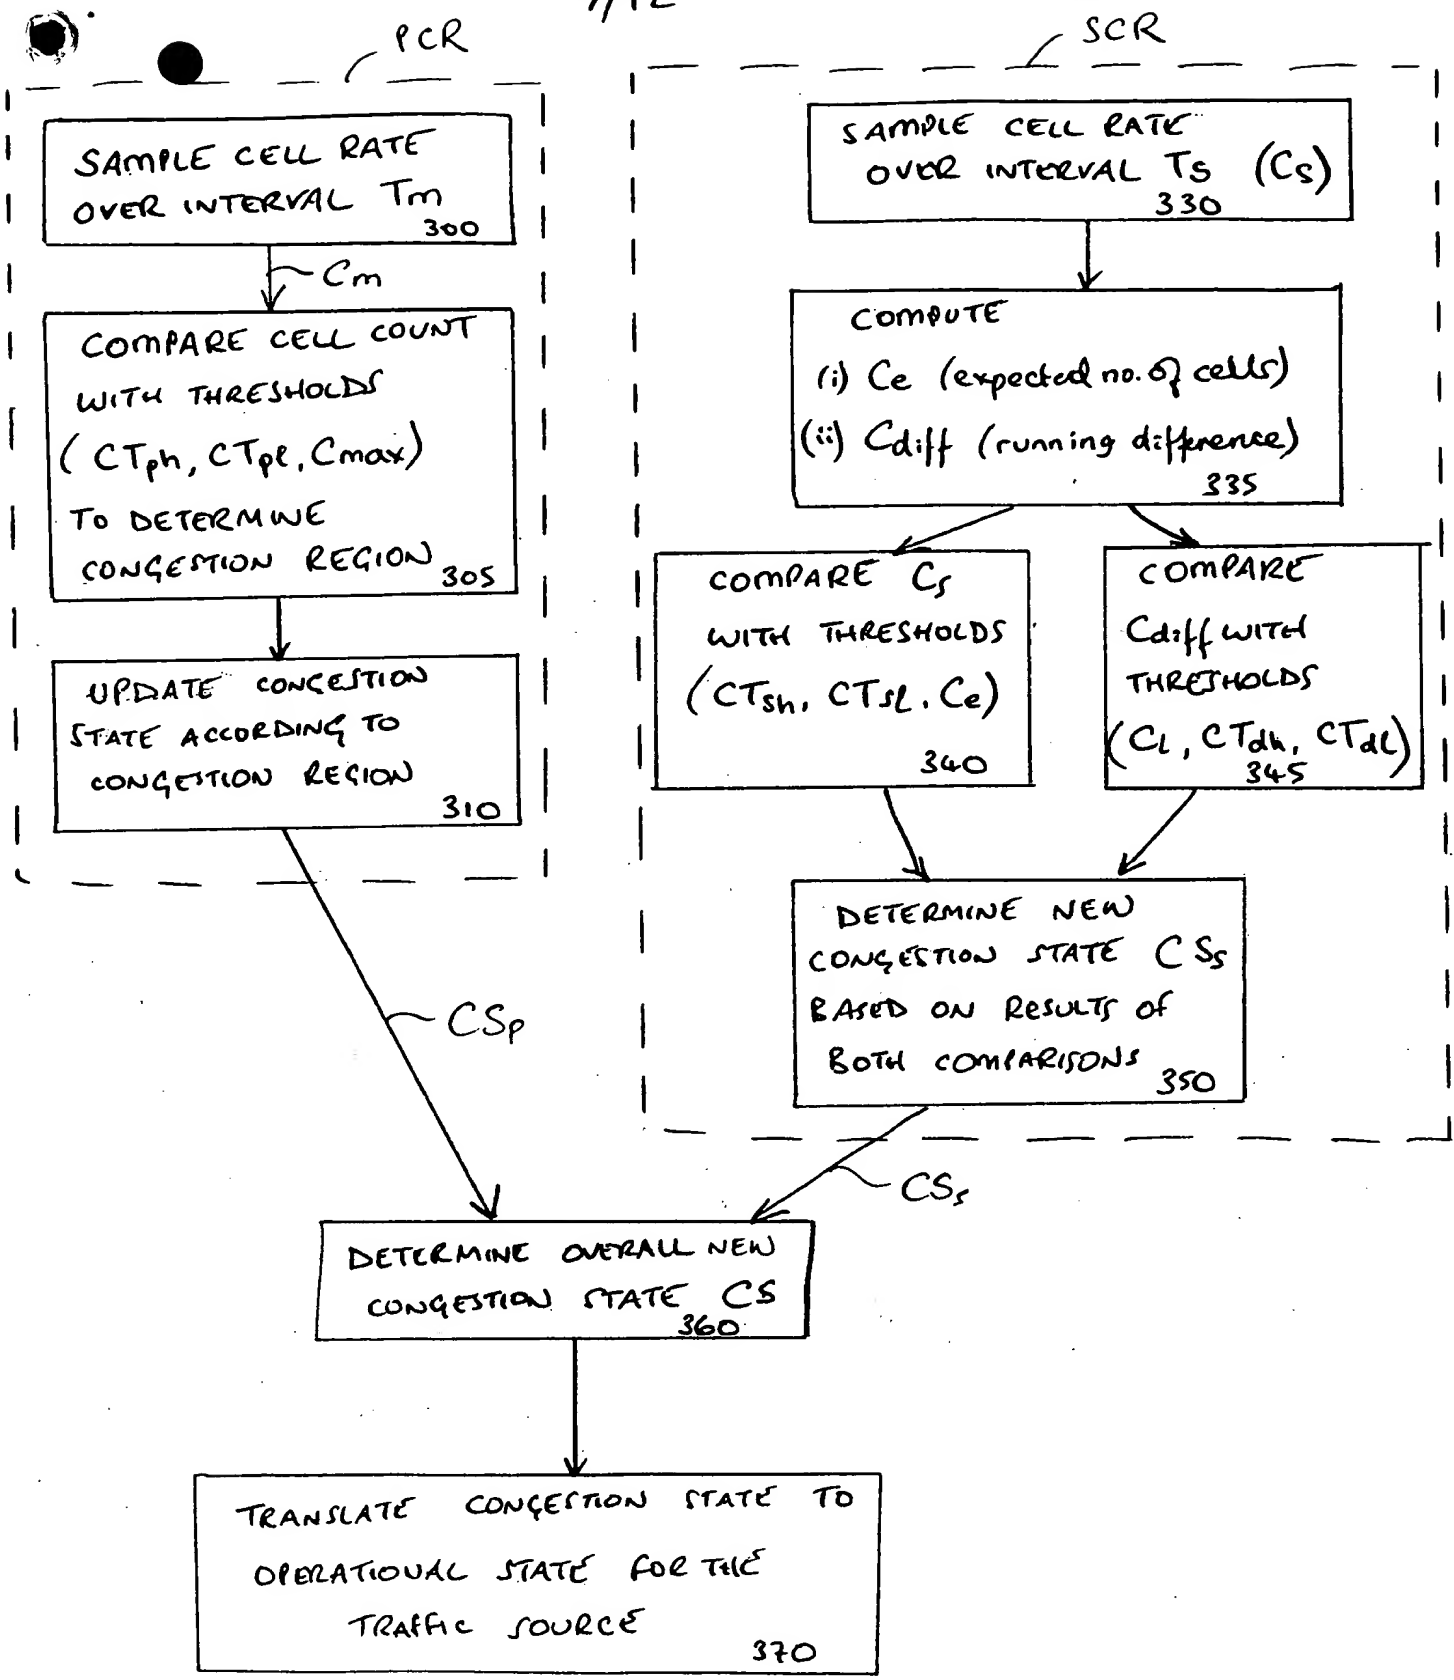 PCR
SAMPLE CELL RATE
OVER INTERVAL Tm
300
Cm
COMPARE CELL COUNT
WITH THRESHOLDS
(CTph, CTpl, Cmax)
TO DETERMINE
CONGESTION REGION
305
UPDATE CONGESTION
STATE ACCORDING TO
CONGESTION REGION
310
CSp
SCR
SAMPLE CELL RATE
OVER INTERVAL Ts (Cs)
330
COMPUTE
(i) Ce (expected no. of cells)
(ii) Cdiff (running difference)
335
COMPARE Cs
WITH THRESHOLDS
(CTsh, CTsl, Ce)
340
COMPARE
Cdiff WITH
THRESHOLDS
(CL, CTdh, CTdl)
345
DETERMINE NEW
CONGESTION STATE CSs
BASED ON RESULTS OF
BOTH COMPARISONS
350
CSs
DETERMINE OVERALL NEW
CONGESTION STATE CS
360
TRANSLATE CONGESTION STATE TO
OPERATIONAL STATE FOR THE
TRAFFIC SOURCE
370